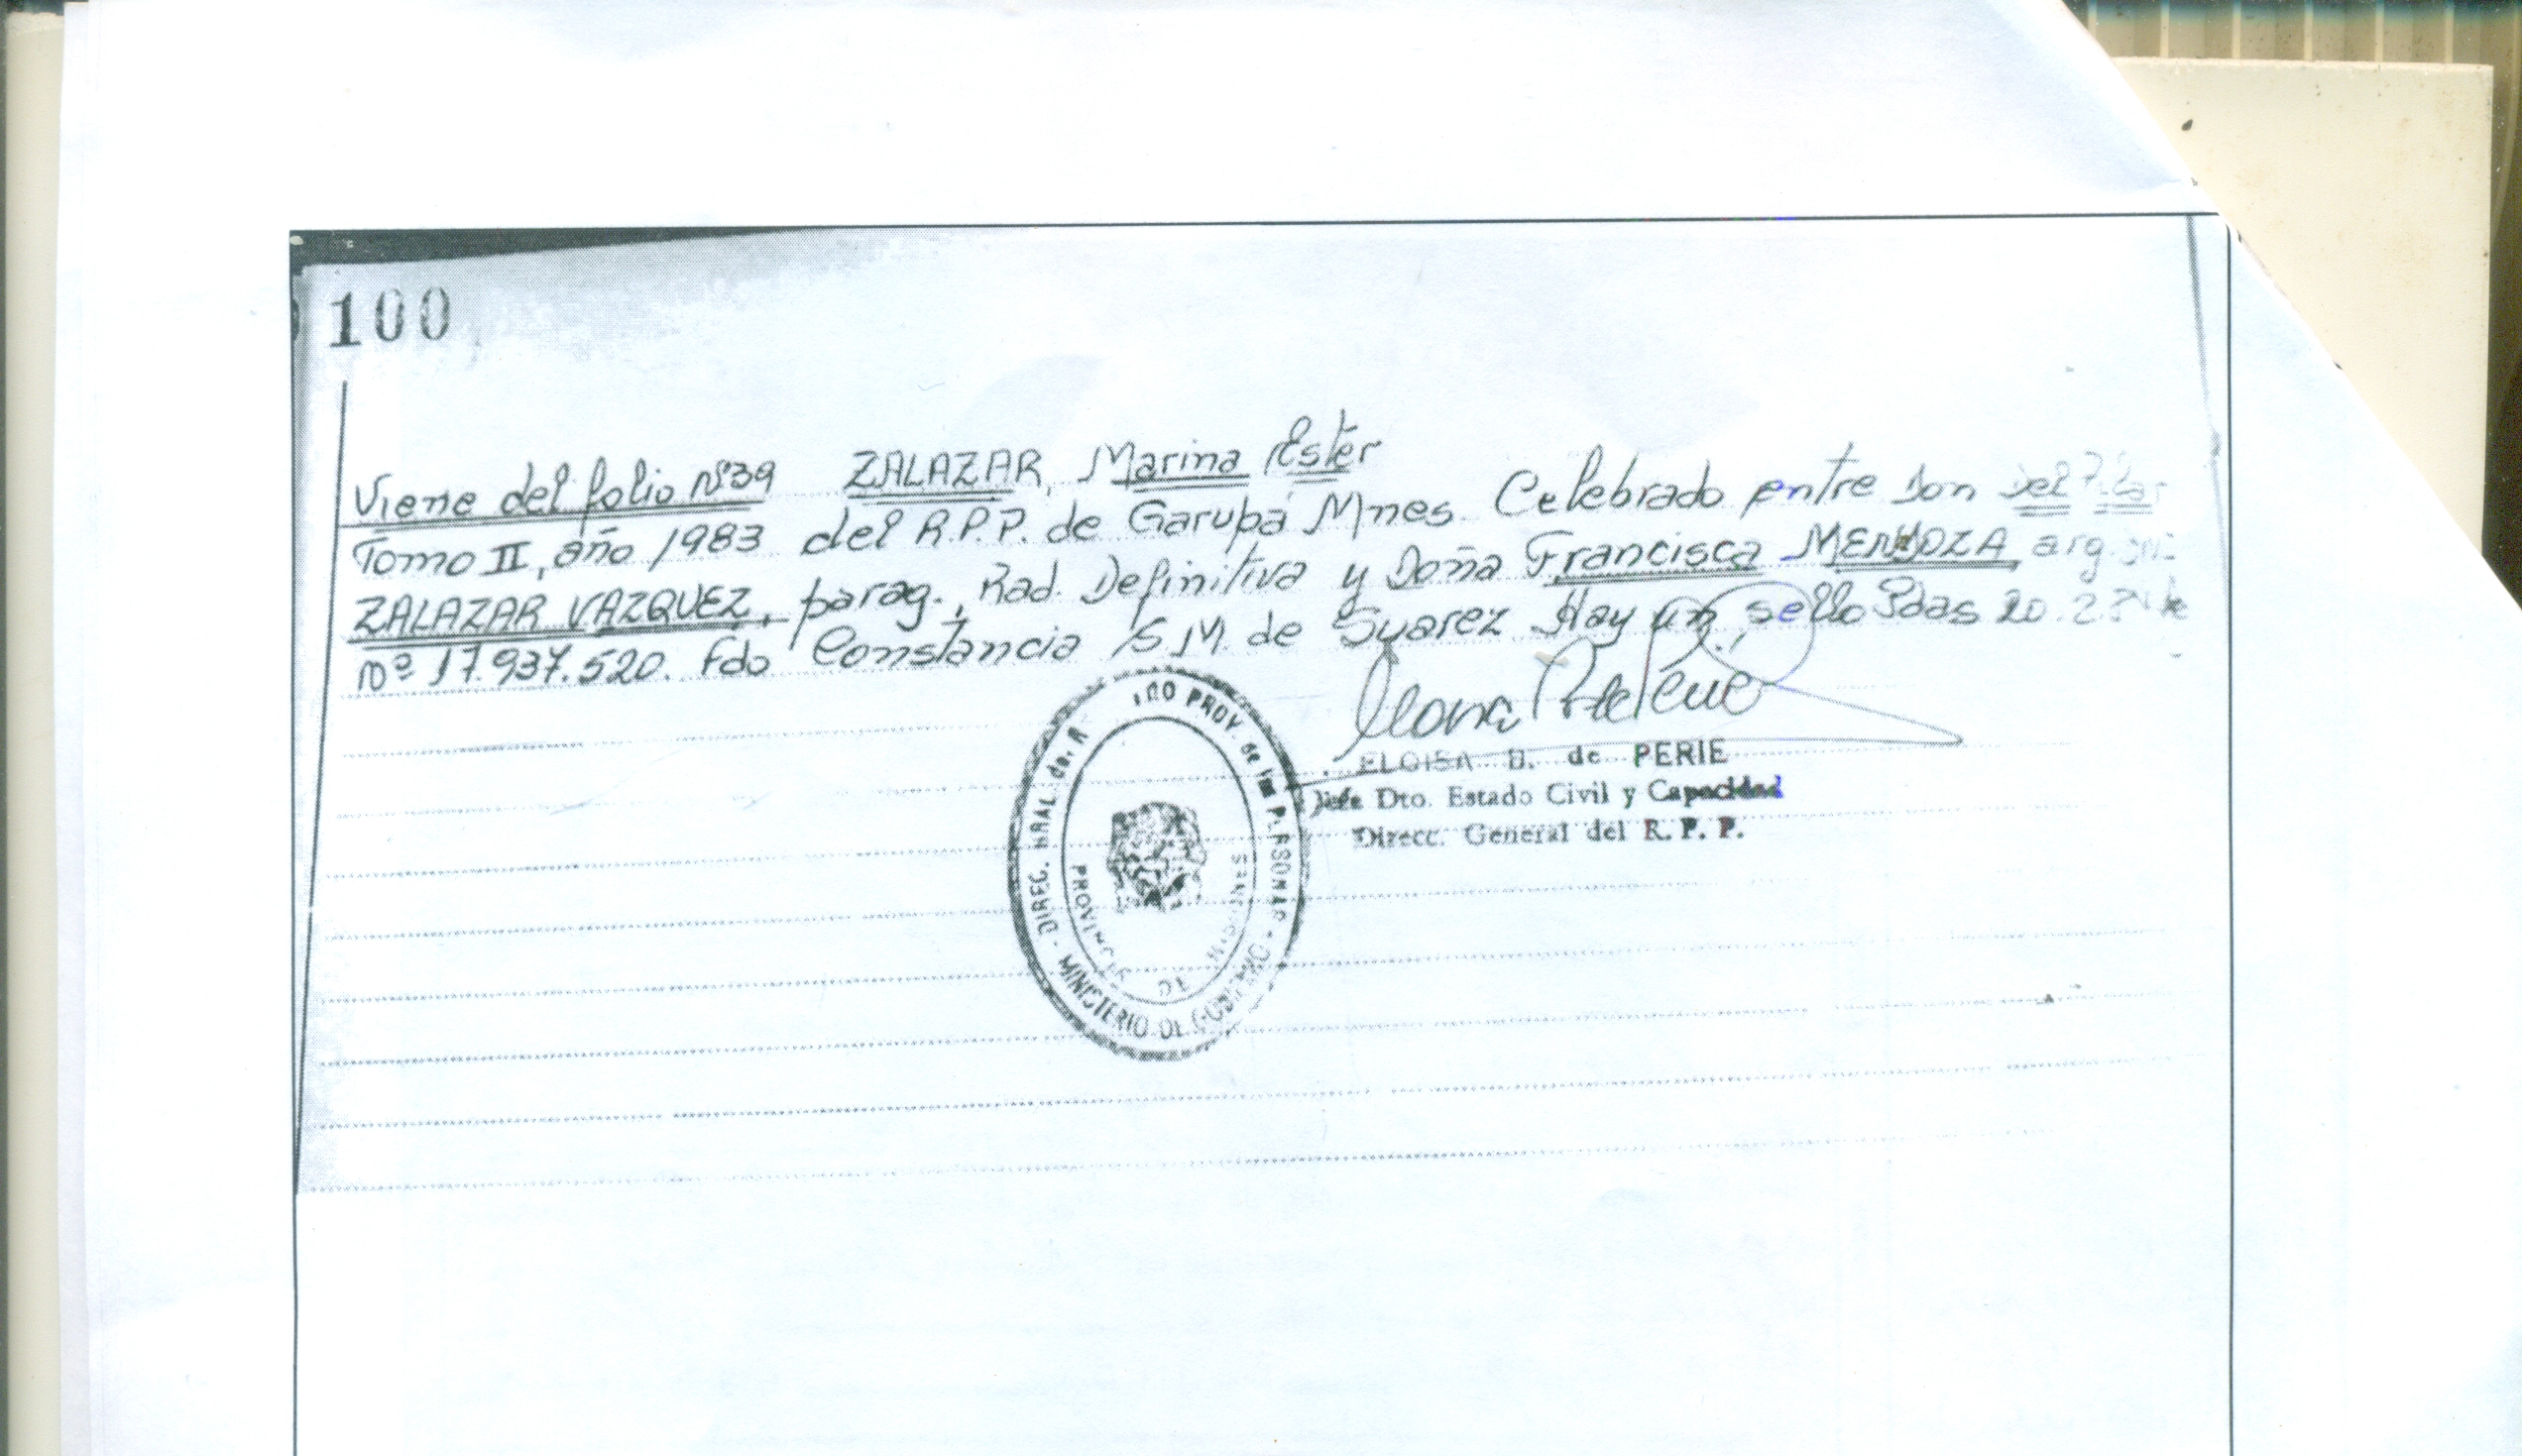 100
Viene del folio Nº39 ZALAZAR, Marina Ester
Tomo II, año 1983 del R.P.P. de Garupá Mnes. Celebrado entre Don Del
ZALAZAR VAZQUEZ, parag., Rad. Definitiva y Doña Francisca MENDOZA,
Nº 17.937.520. Fdo Constancia S M. de Suarez Hay un sello Pdas 20.2
ELOISA B. de PERIE
Jefe Dto. Estado Civil y Capacidad
Direcc. General del R. P. P.
DIREC. GRAL de PROV. de las PERSONAS
MINISTERIO DE GOBIERNO
PROVINCIA DE MISIONES